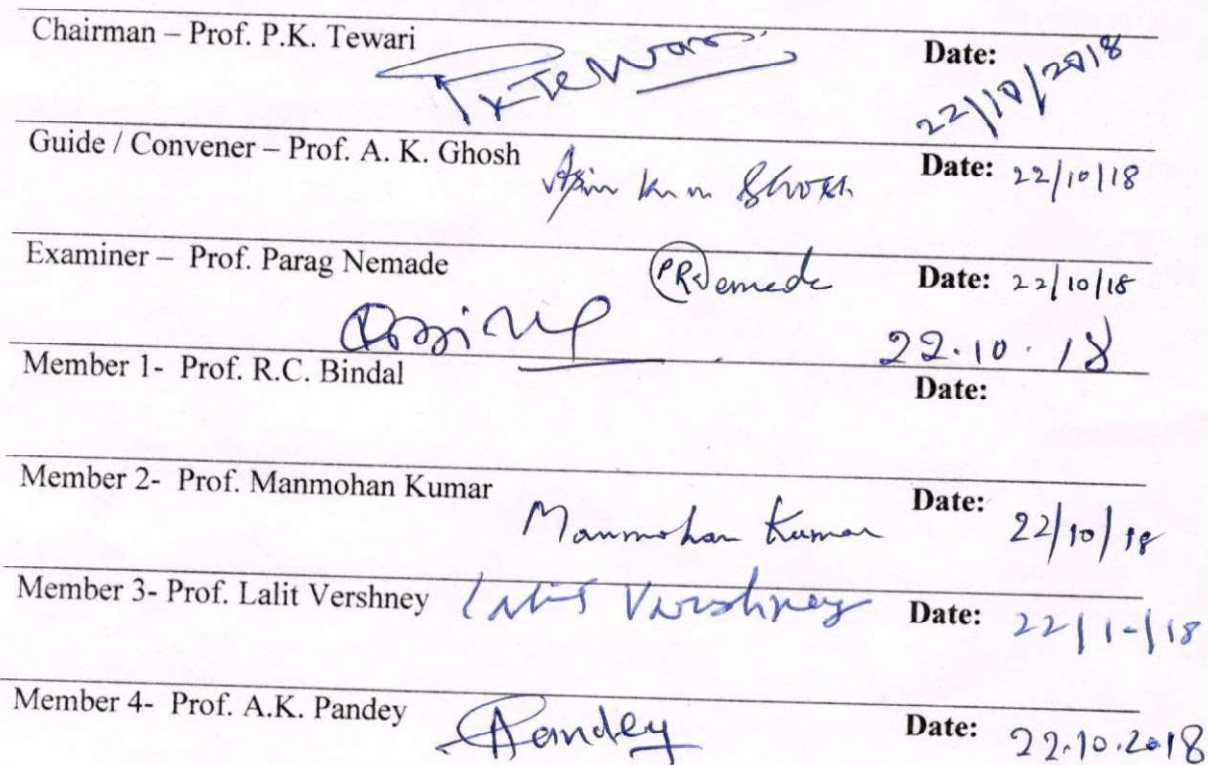 Chairman – Prof. P.K. Tewari PKTewari Date: 22/10/2018
Guide / Convener – Prof. A. K. Ghosh Asim Kumar Ghosh Date: 22/10/18
Examiner – Prof. Parag Nemade PRNemade Date: 22/10/18
22.10.18
Member 1- Prof. R.C. Bindal Date:
Member 2- Prof. Manmohan Kumar Manmohan Kumar Date: 22/10/18
Member 3- Prof. Lalit Vershney Lalit Varshney Date: 22/1-/18
Member 4- Prof. A.K. Pandey APandey Date: 22.10.2018